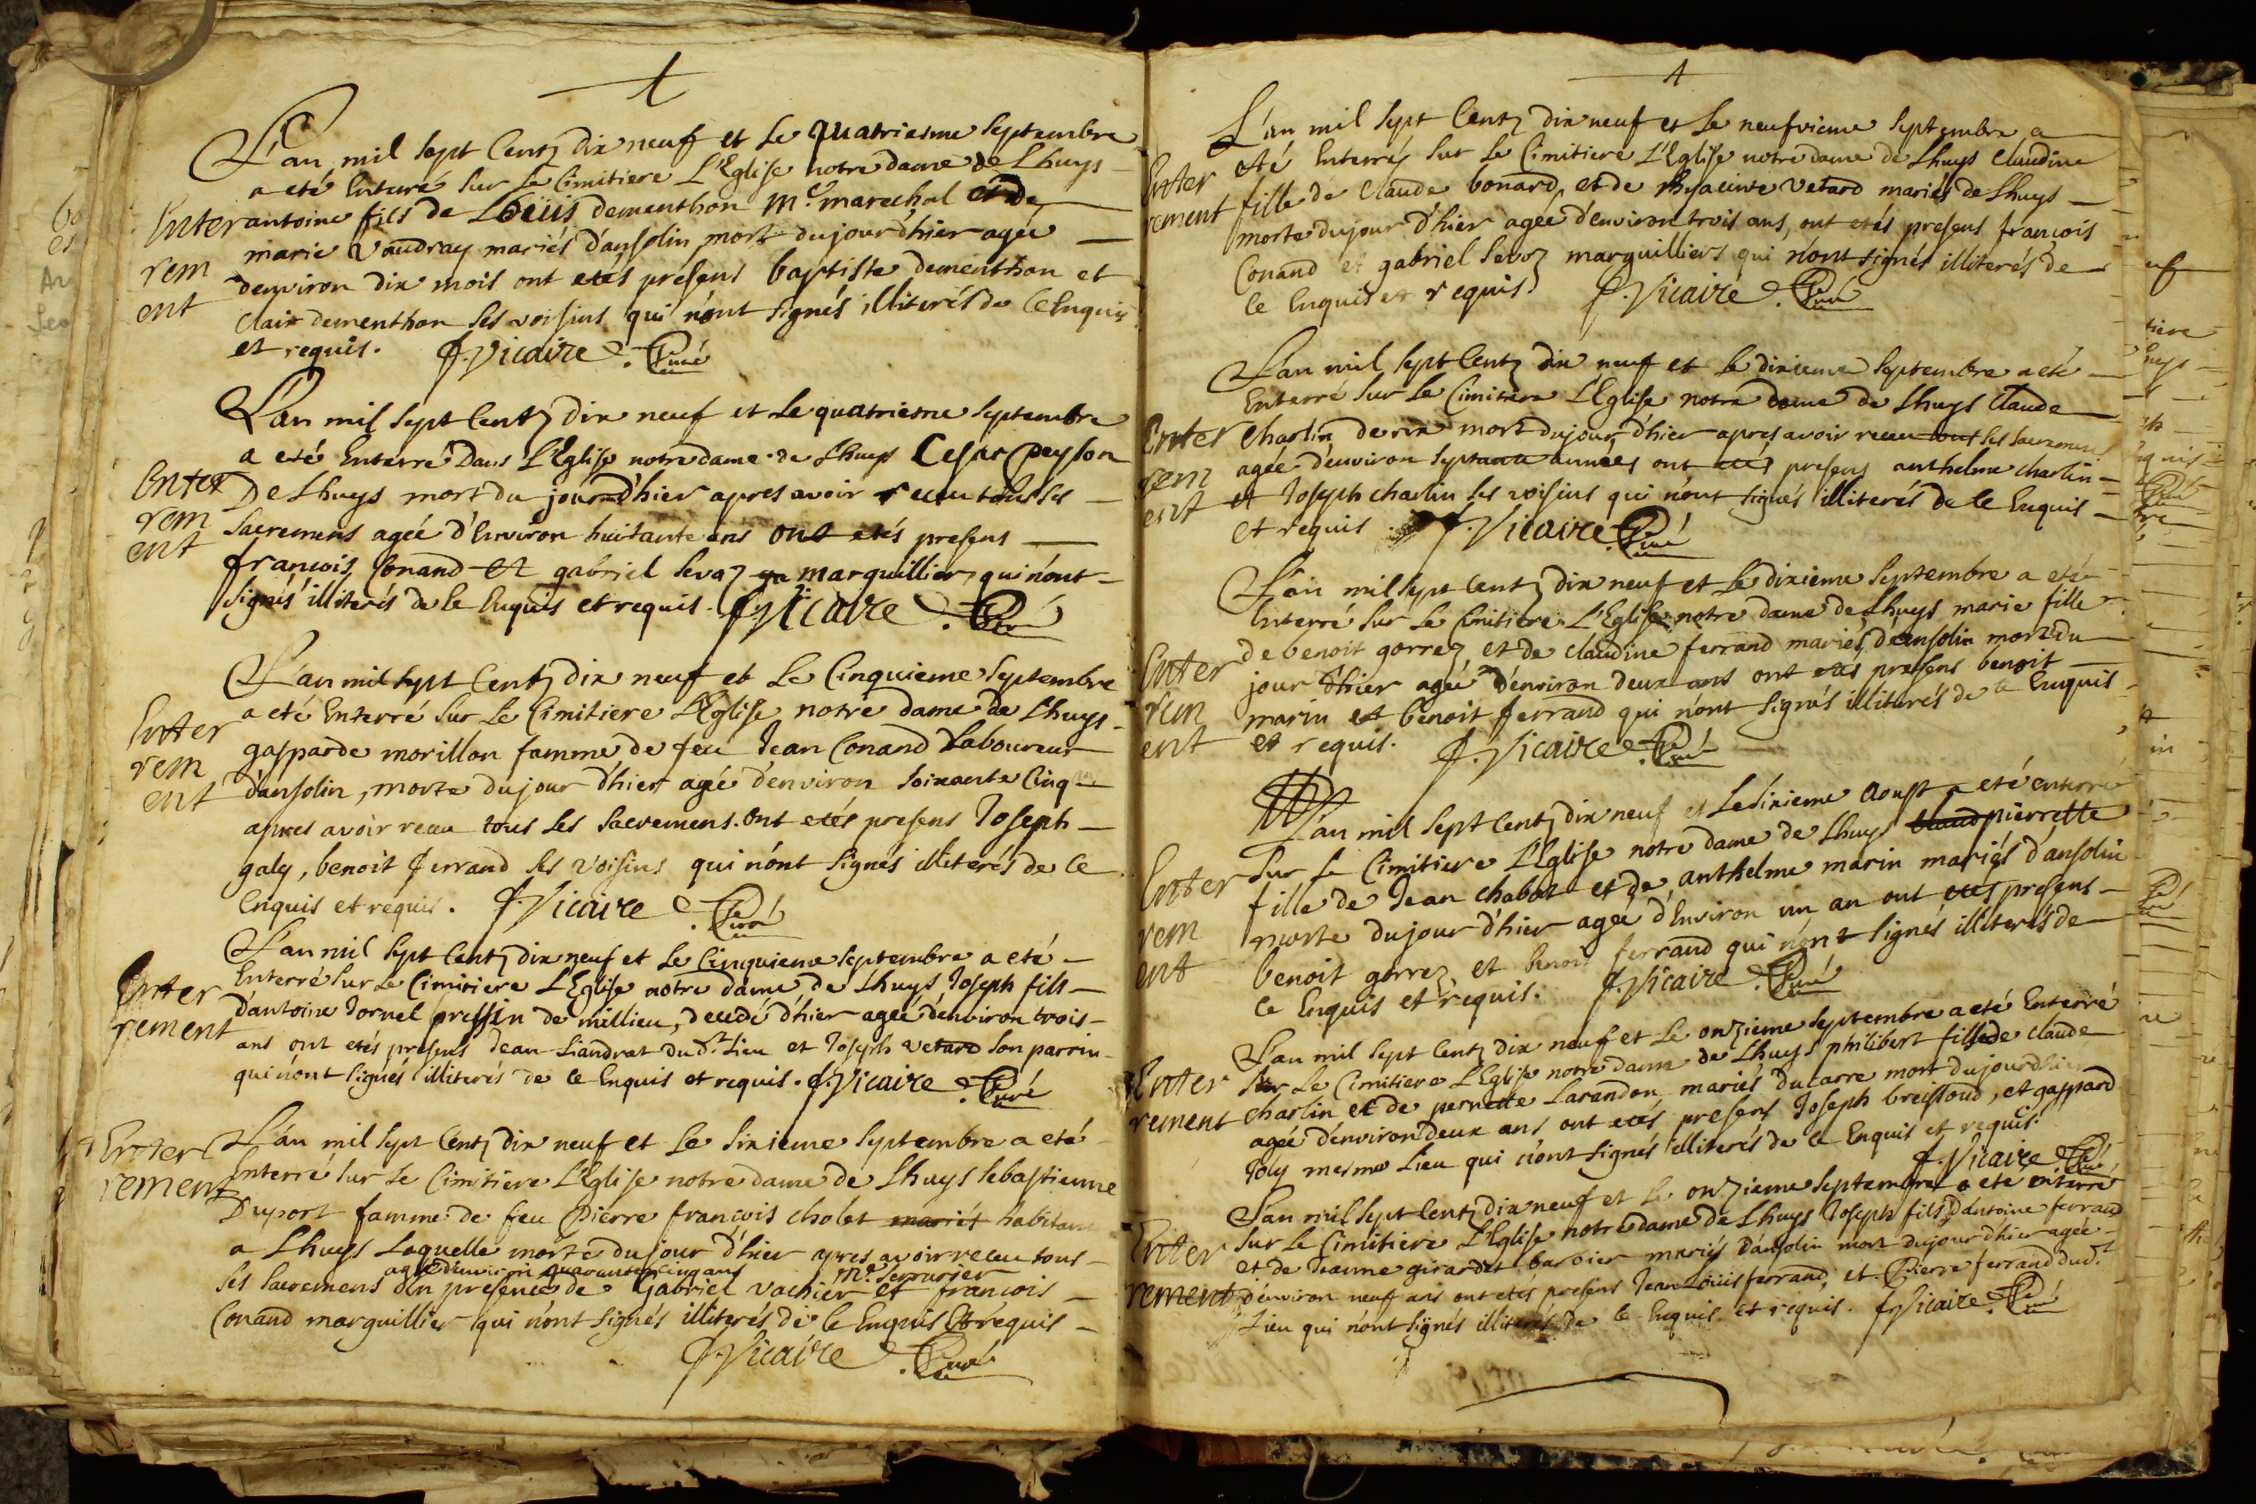 L'an mil sept Centz dix neuf et Le quatriesme Septembre
a eté Enterré Sur Le Cimitiere L'Eglise notre dame de Lhuys
Enter antoine fils de Loüis dementhon Me. marechal et de
marie Vaudray mariés d'ansolin mort du jour d'hier agée
rem d'environ dix mois ont etés presens baptiste dementhon et
ent Clair dementhon Ses voisins qui n'ont Signés illiterés de Ce Enquis
et requis. f. Vicaire Curé
L'an mil Sept Centz dix neuf et Le quatriesme Septembre
a eté Enterré Dans L'Eglise notre dame de Lhuys Cesar Peysson
Enter De Lhuys mort du jour d'hier apres avoir receu tous Les
rem Sacremens agée d'Environ huitante ans ont etés presens
ent
francois Conand et gabriel Sevoz marguilliers qui n'ont
Signés illiterés de Ce Enquis et requis. f. Vicaire Curé
L'an mil sept Centz dix neuf et Le Cinquieme Septembre
Enter a eté Enterré Sur Le Cimitiere L'Eglise notre dame de Lhuys
rem gasparde morillon famme de feu Jean Conand Laboureur
ent d'ansolin, morte du jour d'hier agée d'environ Soixante Cinq
apres avoir receu tous Les Sacremens. ont etés presens Joseph
galy, benoit ferrand Ses voisins qui n'ont Signés illiterés de Ce
Enquis et requis. f. Vicaire Curé
L'an mil Sept Centz dix neuf et Le Cinquieme Septembre a eté
Enter Enterré Sur Le Cimitiere L'Eglise notre dame de Lhuys Joseph fils
rement d'antoine Jornel pressin de millieu, decedé d'hier agée d'environ trois
ans ont etés presens Jean Liandrat dud.t Lieu et Joseph vetard Son parrin
qui n'ont Signés illiterés de Ce Enquis et requis. f. Vicaire Curé
Enter L'an mil Sept Centz dix neuf et Le Sixieme Septembre a eté
rement Enterré Sur Le Cimitiere L'Eglise notre dame de Lhuys Sebastienne
Duport famme de feu Pierre francois cholet mariés habitant
a Lhuys Laquelle morte du jour d'hier apres avoir receu tous
agée d'environ quarante Cinq ans Me. Serrurier
Les Sacremens en presence de Gabriel vachier et francois
Conand marguillier qui n'ont Signés illiterés de Ce Enquis et requis
f. Vicaire Curé
L'an mil Sept Centz dix neuf et Le neufvieme Septembre a
Enter eté Enterrés Sur Le Cimitiere L'Eglise notre dame de Lhuys Claudine
rement fille de Claude bonard, et de Hyacinte Vetard mariés de Lhuys
morte du jour d'hier agée d'environ trois ans, ont etés presens françois
Conand et gabriel Sevoz marguilliers qui n'ont Signés illiterés de
Ce Enquis et requis. f. Vicaire Curé
L'an mil Sept Centz dix neuf et Le dixieme Septembre a eté
Enterré Sur Le Cimitiere L'Eglise notre dame de Lhuys Claude
Enter Charlin de rix mort du jour d'hier apres avoir receu tous Les Sacremens
rem agée d'environ années ont etés presens anthelme charlin
ent et Joseph charlin Ses voisins qui n'ont Signés illiterés de Ce Enquis
et requis. f. Vicaire Curé
L'an mil Sept Centz dix neuf et Le dixieme Septembre a eté
Enterré Sur Le Cimitiere L'Eglise notre dame de Lhuys marie fille
Enter de benoit gorrez et de claudine ferrand mariés d'ansolin mort du
jour d'hier agée d'environ deux ans ont etés presens benoit
rem marin et benoit ferrand qui n'ont Signés illiterés de Ce Enquis
ent et requis. f. Vicaire Curé
L'an mil Sept Centz dix neuf et Le Sixieme Aoust a eté enterré
Sur Le Cimitiere L'Eglise notre dame de Lhuys claud pierrette
Enter fille de Jean chabot et de anthelme marin mariés d'ansolin
rem morte du jour d'hier agée d'Environ un an ont etés presens
ent benoit gorrez et benoit ferrand qui n'ont Signés illiterés de
Ce Enquis et requis. f. Vicaire Curé
L'an mil Sept Centz dix neuf et Le onzieme Septembre a eté Enterré
Enter Sur Le Cimitiere L'Eglise notre dame de Lhuys philibert fils de Claude
rement charlin et de pernette Larandon, mariés ducarre mort du jourdhier
agée d'environ deux ans ont etés presens Joseph breissoud, et gaspard
Joly mesme Lieu qui n'ont Signés illiterés de Ce Enquis et requis.
f. Vicaire Curé
L'an mil Sept Centz dix neuf et Le onzieme Septembre a eté enterré
Enter Sur Le Cimitiere L'Eglise notre dame de Lhuys Joseph fils d'antoine ferrand
et de Jeanne girardet barbier mariés d'ansolin mort du jour d'hier agée
rement d'environ neuf ans ont etés presens Jean Loüis ferrand, et Pierre ferrand dud.t
Lieu qui n'ont Signés illiterés de Ce Enquis et requis. f. Vicaire Curé